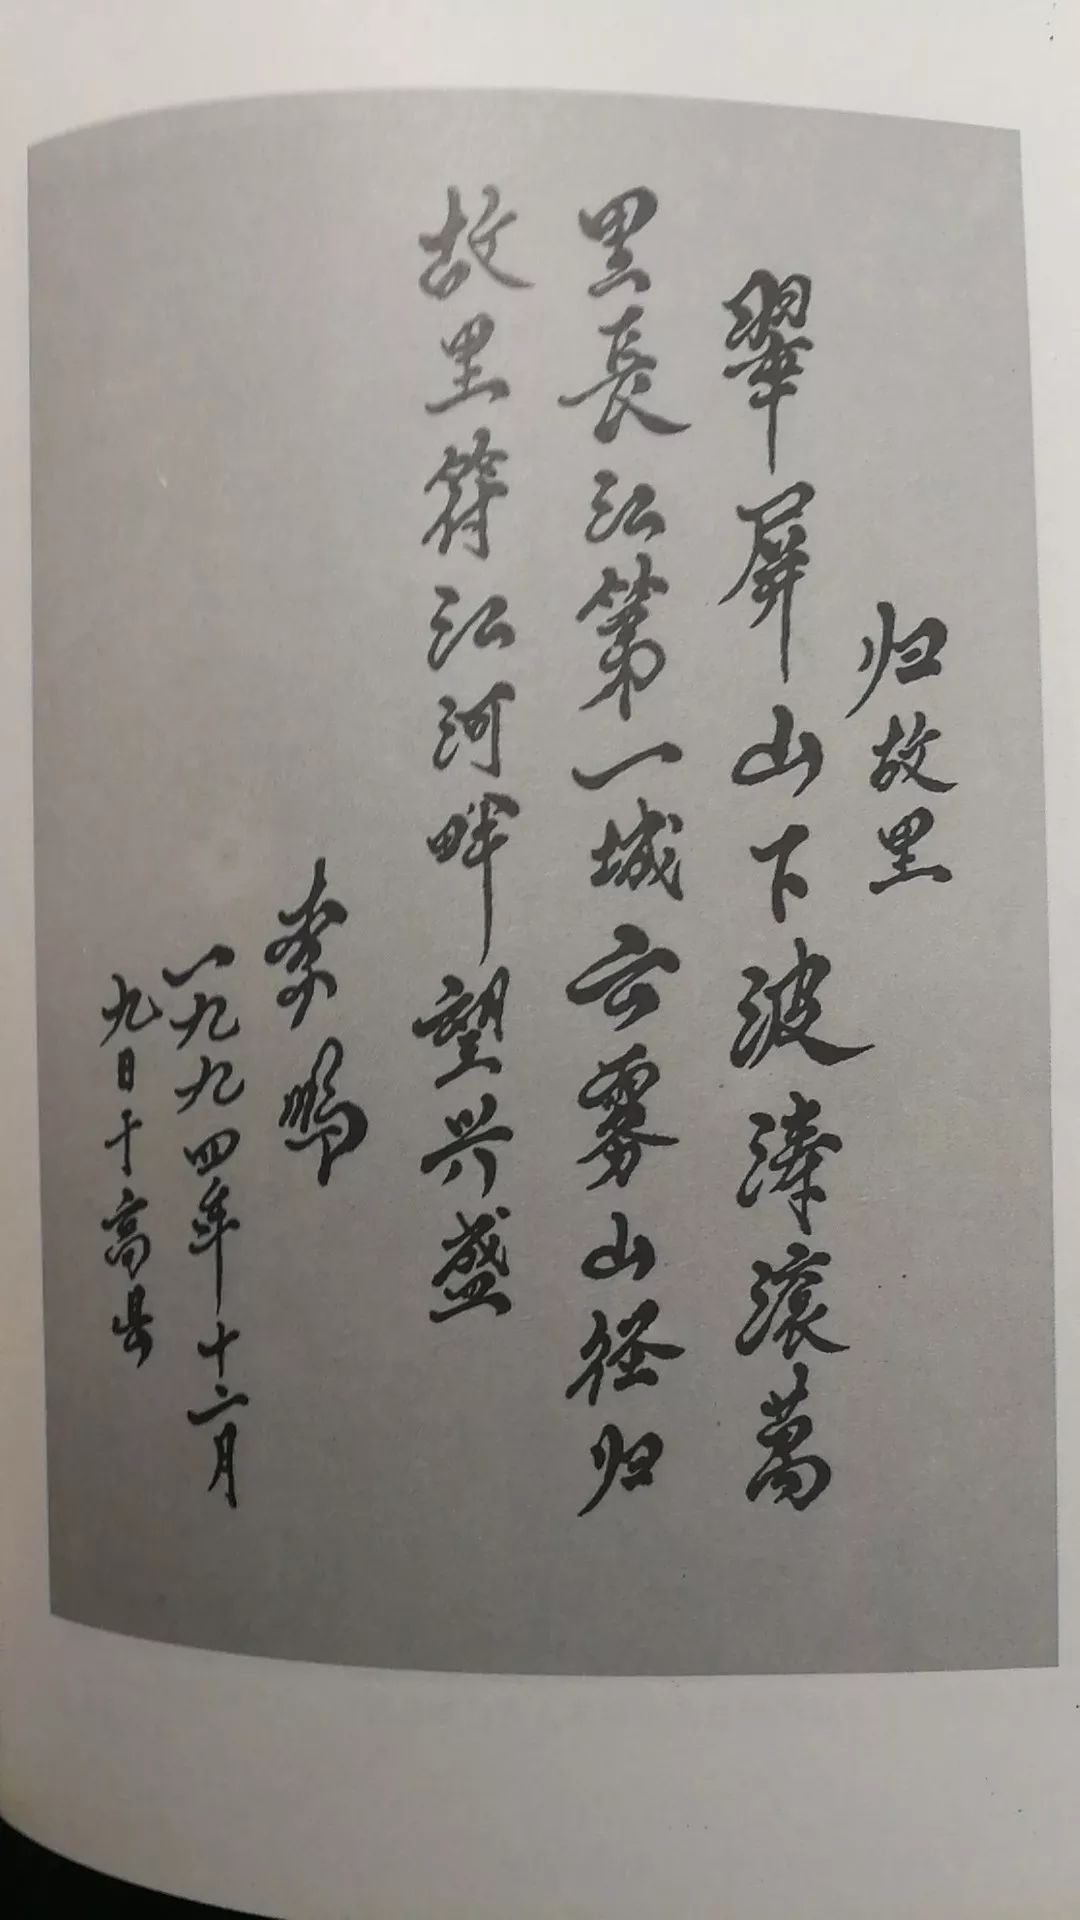 归故里
翠屏山下波涛滚萬
里長江第一城云雾山径归
故里符江河畔望兴盛
李鹏
一九九四年十二月
九日于高县